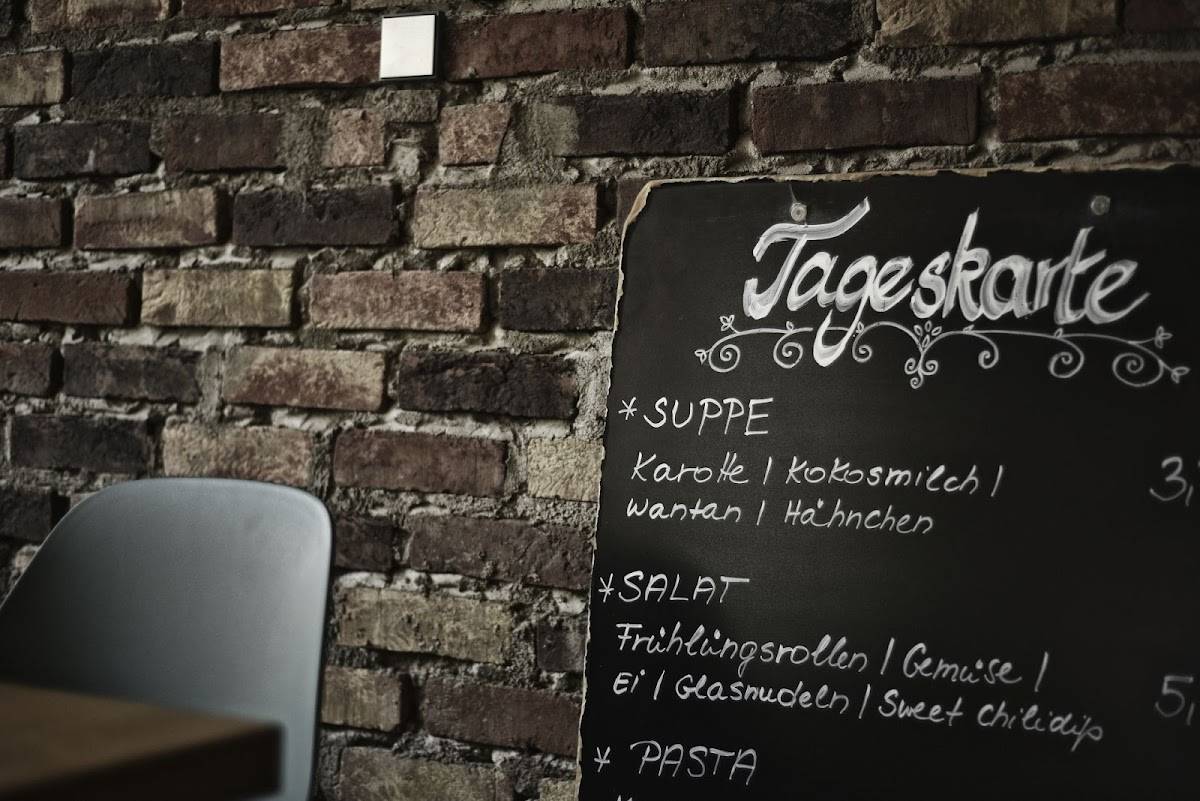 Tageskarte
* SUPPE
Karotte | Kokosmilch | 3,
Wantan | Hähnchen
* SALAT
Frühlingsrollen | Gemüse |
Ei | Glasnudeln | Sweet Chilidip 5,
* PASTA